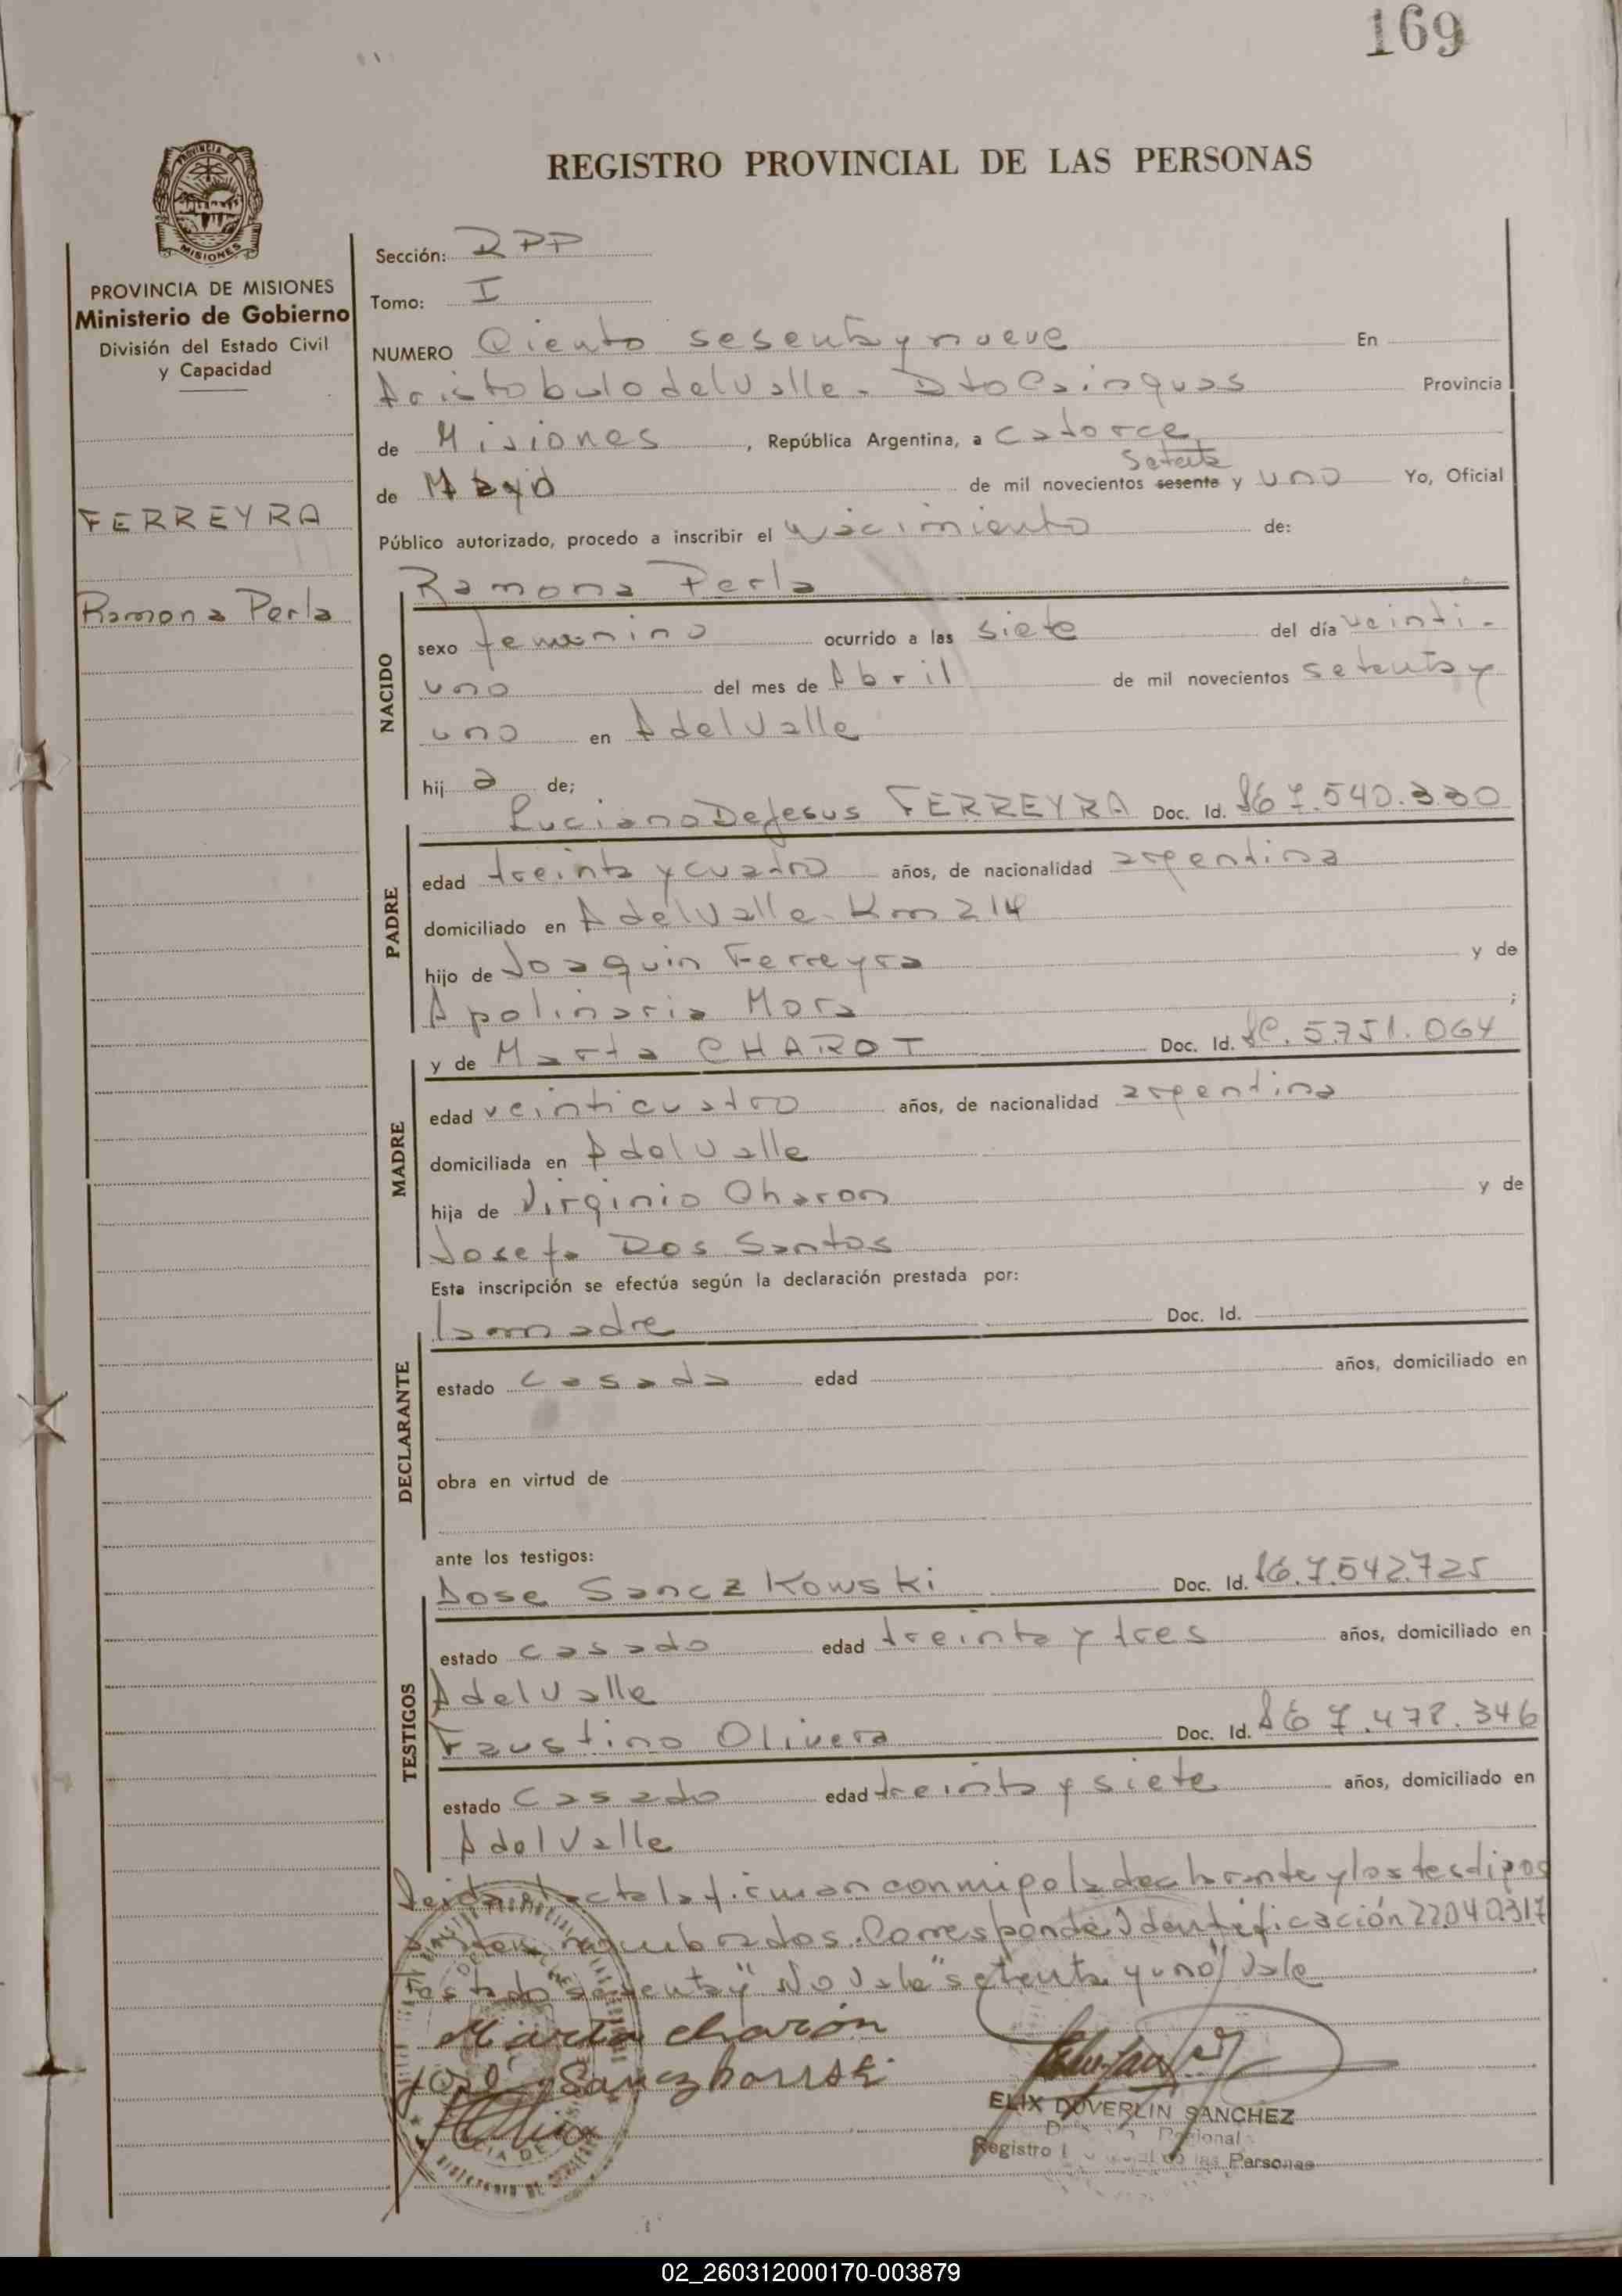 169
REGISTRO PROVINCIAL DE LAS PERSONAS
PROVINCIA DE MISIONES
Ministerio de Gobierno
División del Estado Civil
y Capacidad
FERREYRA
Ramona Perla
Sección: RPP
Tomo: I
NUMERO Ciento sesenta y nueve En
Aristobulo del Valle - Dto Cainguas Provincia
de Misiones, República Argentina, a catorce
setenta
de Mayo de mil novecientos sesenta y uno Yo, Oficial
Público autorizado, procedo a inscribir el Nacimiento de:
Ramona Perla
NACIDO
sexo femenino ocurrido a las siete del día veinti-
uno del mes de Abril de mil novecientos setenta y
uno en A del Valle
hij a de;
PADRE
Luciano De Jesus FERREYRA Doc. Id. 7.540.330
edad treinta y cuatro años, de nacionalidad argentina
domiciliado en A del Valle - Km 214
hijo de Joaquin Ferreyra y de
Apolinaria Mora ;
MADRE
y de Marta CHAROT Doc. Id. 5.751.064
edad veinticuatro años, de nacionalidad argentina
domiciliada en A del Valle
hija de Virginio Charon y de
Josefa Dos Santos
Esta inscripción se efectúa según la declaración prestada por:
DECLARANTE
la madre Doc. Id.
estado casada edad años, domiciliado en
obra en virtud de
ante los testigos:
TESTIGOS
Jose Sancz Kowski Doc. Id. 7.542.725
estado casado edad treinta y tres años, domiciliado en
A del Valle
Faustino Olivera Doc. Id. 7.478.346
estado casado edad treinta y siete años, domiciliado en
A del Valle
Leida el acta la firman conmigo la declarante y los testigos
antes nombrados. Corresponde Identificación 22040317
Testado "sesenta" No Vale "setenta y uno" Vale
Marta charon
José Sanczkowski
ELIX DUVERLIN SANCHEZ
Registro de las Personas
02_260312000170-003879